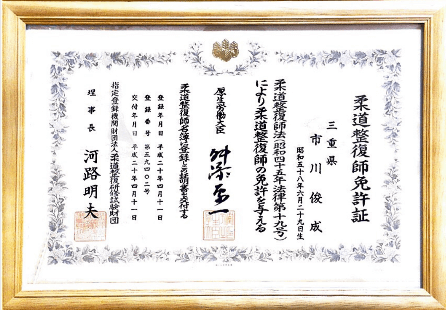 柔道整復師免許証
三重県
市川俊成
昭和五十八年六月二十九日生
柔道整復師法(昭和四十五年法律第十九号)
により柔道整復師の免許を与える
厚生労働大臣
舛添要一
柔道整復師名簿に登録したので本証書を交付する
登録年月日 平成二十年四月十一日
登録番号
交付年月日 平成二十年四月十一日
指定登録機関財団法人柔道整復研修試験財団
理事長 河路明夫